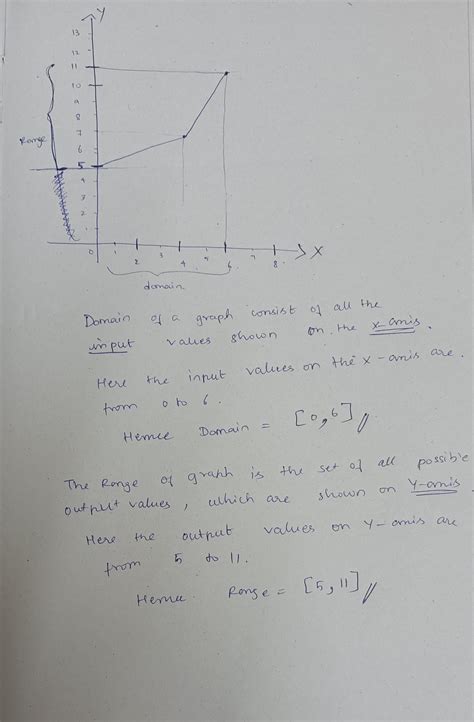 Y
13
12
11
10
9
8
7
6
5
4
3
2
Range
0 1 2 3 4 5 6 7 8 X
domain
Domain of a graph consist of all the
input values shown on the x-axis.
Here the input values on the x-axis are.
from 0 to 6.
Hence Domain = [0,6]
The Range of graph is the set of all possible
output values, which are shown on Y-axis
Here the output values on Y-axis are
from 5 to 11.
Hence Range = [5,11]